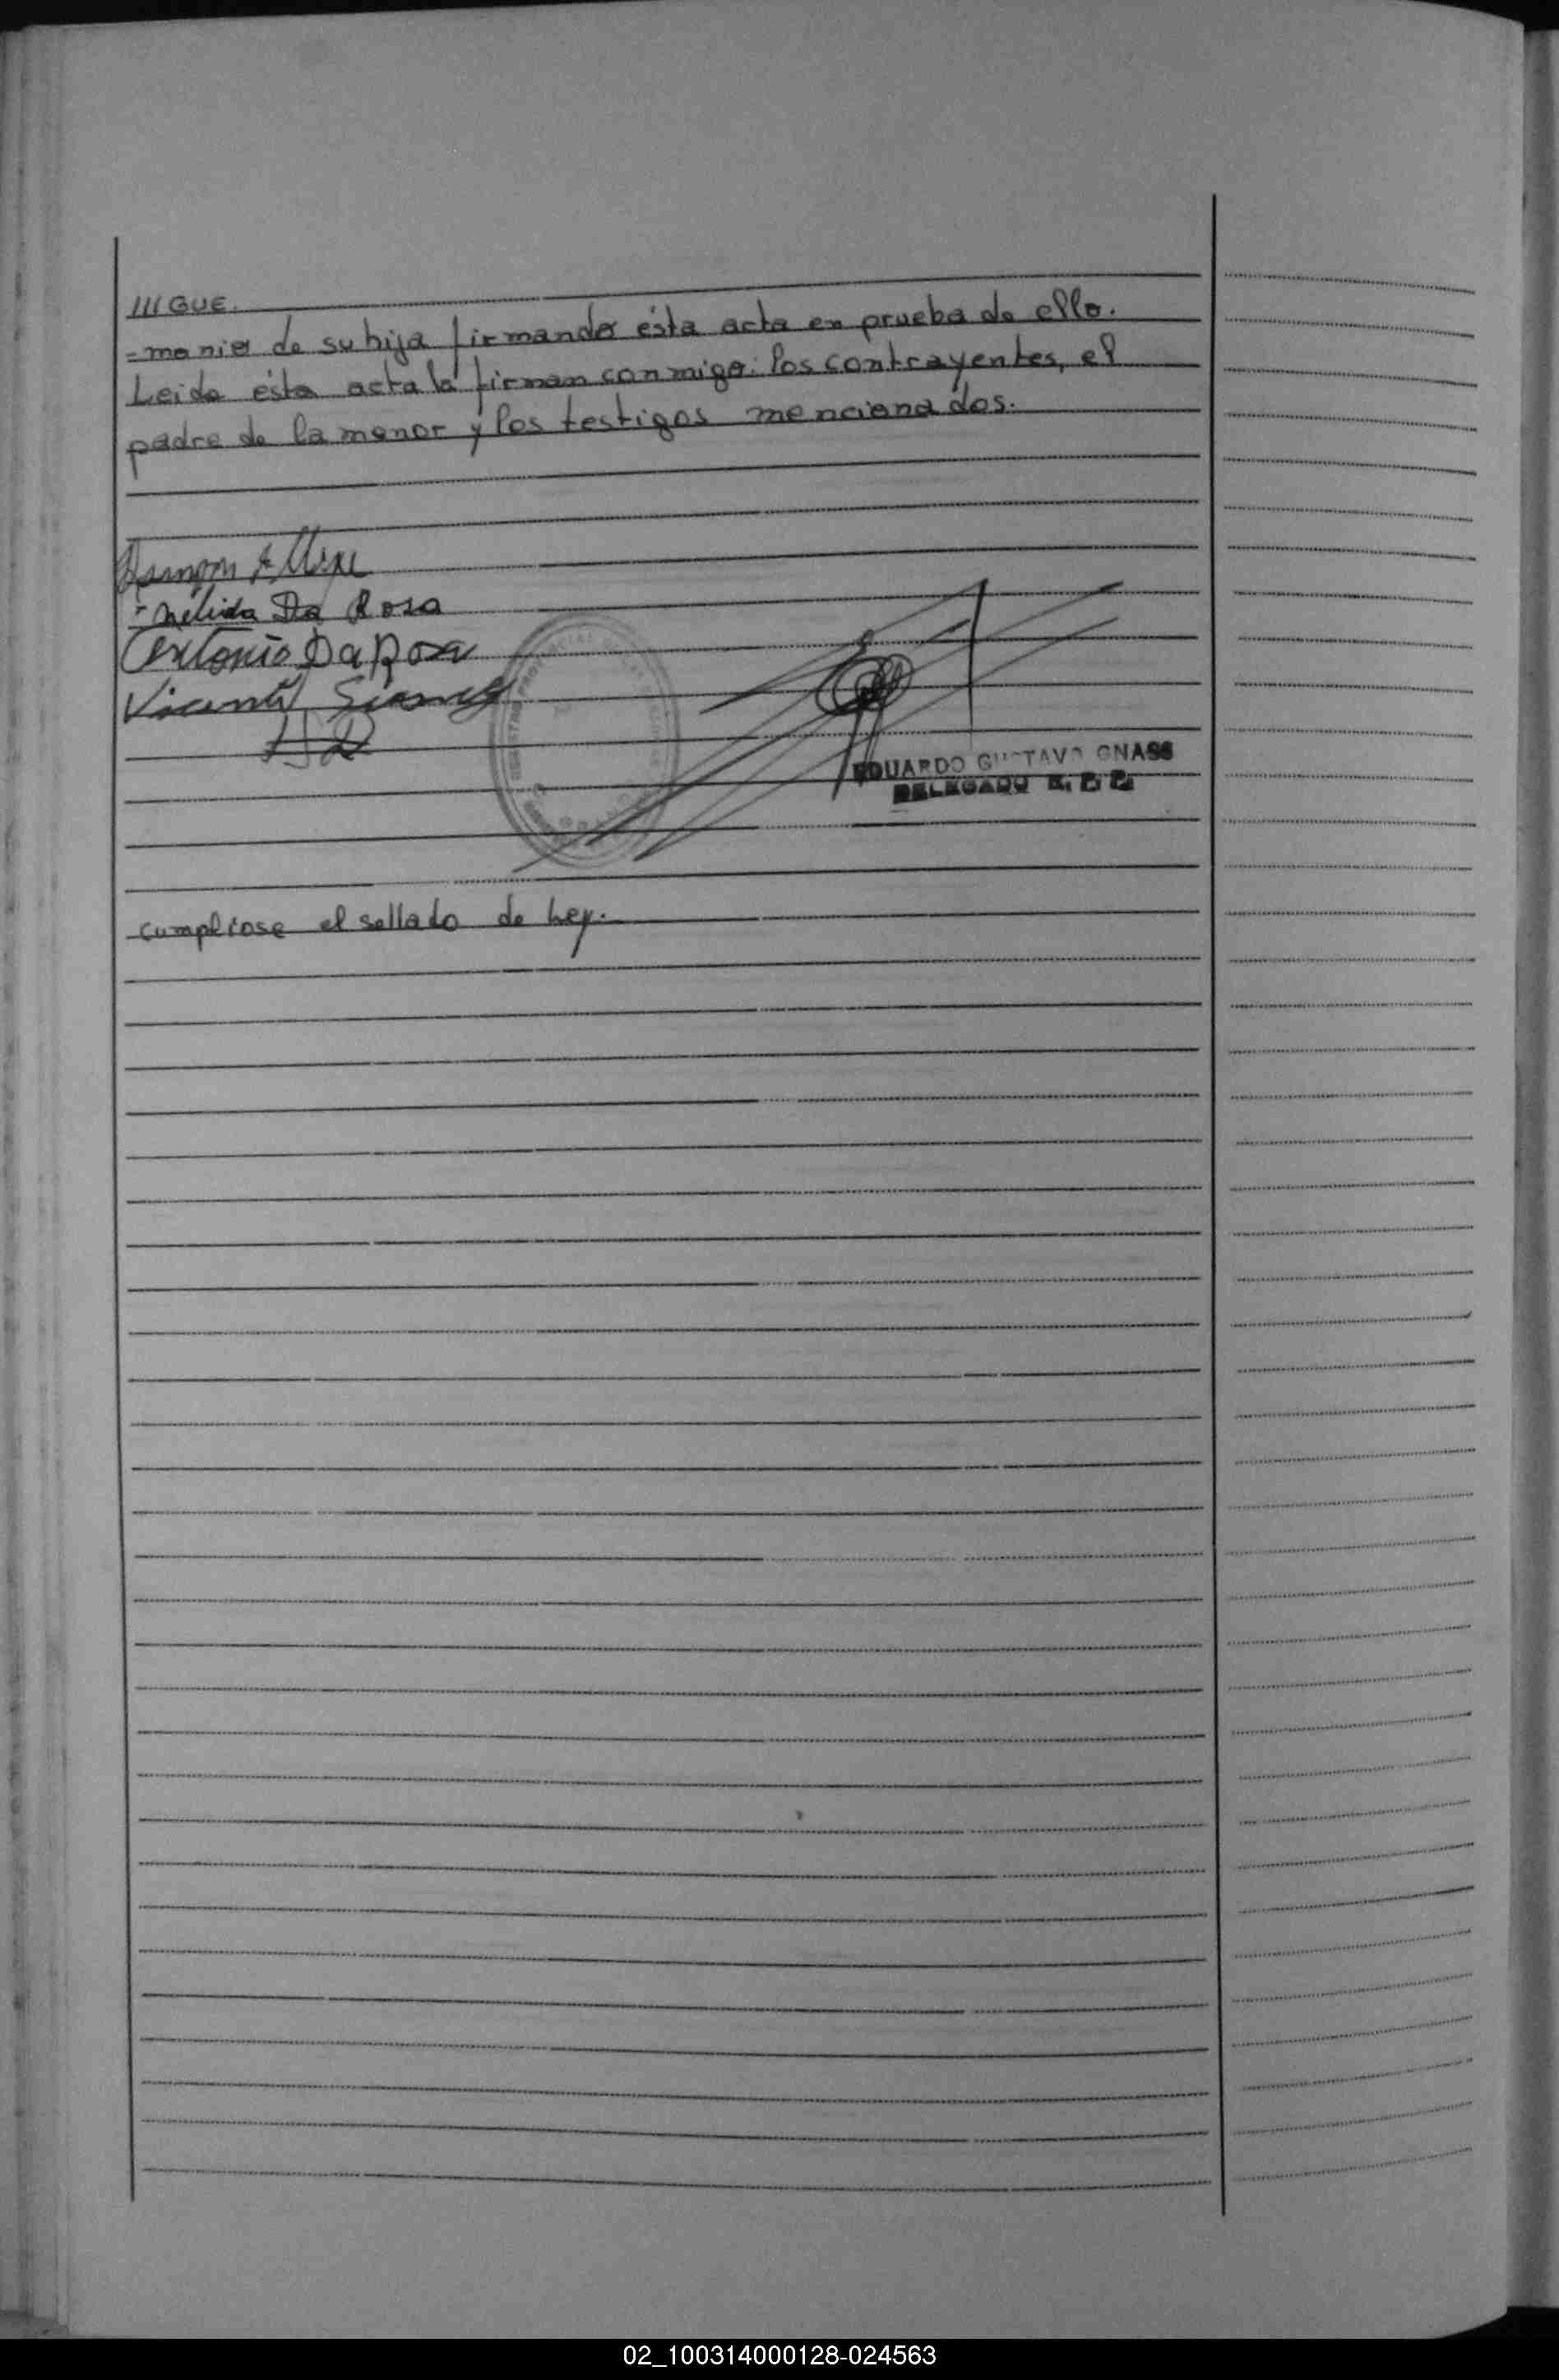 ///GUE.
-monio de su hija firmando ésta acta en prueba de ello.
Leida ésta acta la firman conmigo: los contrayentes, el
padre de la menor y los testigos mencionados.
Ramon
Nelida Da Rosa
Antonio Da Rosa
Vicente
EDUARDO GUSTAVO GNASS
DELEGADO R. P. P.
cumpliose el sellado de Ley.
02_100314000128-024563